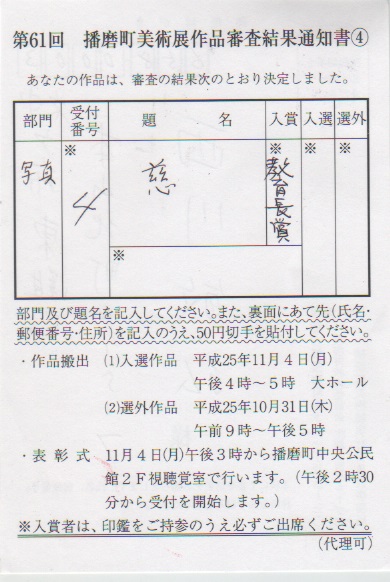 第61回 播磨町美術展作品審査結果通知書④
あなたの作品は、審査の結果次のとおり決定しました。
部門 受付番号 題名 入賞 入選 選外
写真 ※ 4 慈 ※ 教育長賞 ※ ※
※
部門及び題名を記入してください。また、裏面にあて先(氏名・
郵便番号・住所)を記入のうえ、50円切手を貼付してください。
・作品搬出 (1)入選作品 平成25年11月4日(月)
午後4時～5時 大ホール
(2)選外作品 平成25年10月31日(木)
午前9時～午後5時
・表彰式 11月4日(月)午後3時から播磨町中央公民
館2F視聴覚室で行います。(午後2時30
分から受付を開始します。)
※入賞者は、印鑑をご持参のうえ必ずご出席ください。
(代理可)